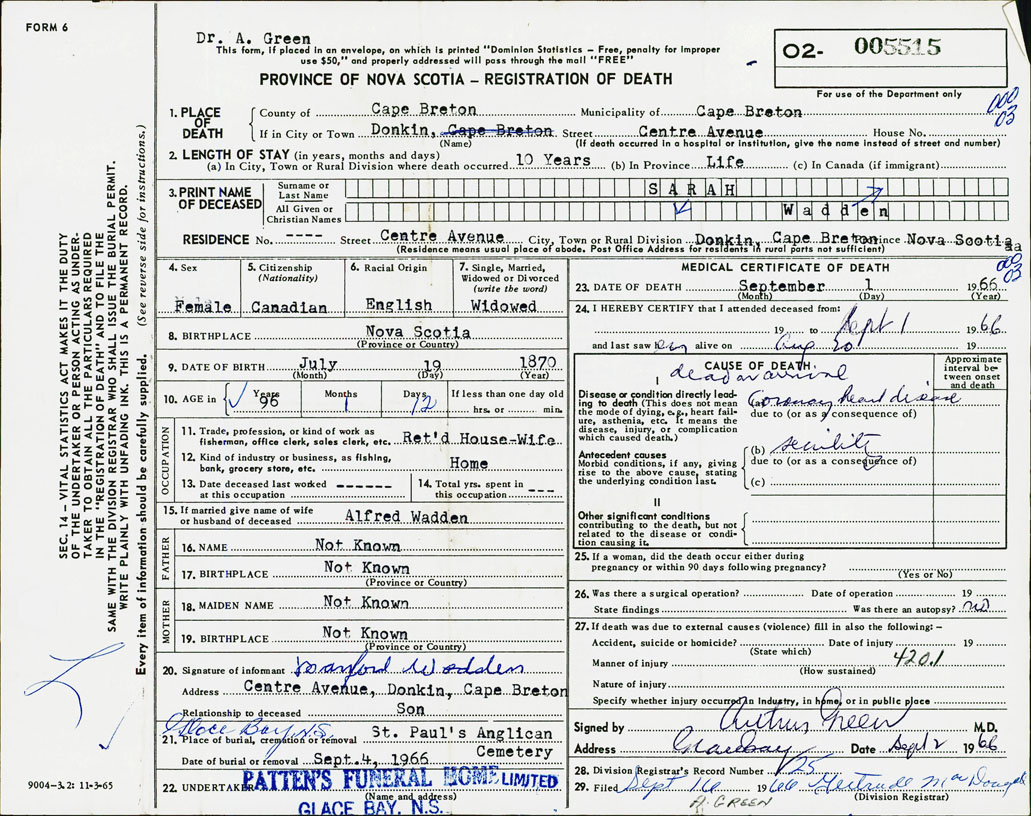 FORM 6
Dr. A. Green
This form, if placed in an envelope, on which is printed "Dominion Statistics – Free, penalty for improper
use $50," and properly addressed will pass through the mail "FREE"
PROVINCE OF NOVA SCOTIA – REGISTRATION OF DEATH
O2- 005515
For use of the Department only
000
03
SEC. 14 – VITAL STATISTICS ACT MAKES IT THE DUTY
OF THE UNDERTAKER OR PERSON ACTING AS UNDER-
TAKER TO OBTAIN ALL THE PARTICULARS REQUIRED
IN THE "REGISTRATION OF DEATH" AND TO FILE THE
SAME WITH THE DIVISION REGISTRAR WHO SHALL ISSUE THE BURIAL PERMIT.
WRITE PLAINLY WITH UNFADING INK. THIS IS A PERMANENT RECORD.
Every item of information should be carefully supplied. (See reverse side for instructions.)
1. PLACE OF DEATH
County of Cape Breton Municipality of Cape Breton
If in City or Town Donkin, Cape Breton Street Centre Avenue House No.
(Name) (If death occurred in a hospital or institution, give the name instead of street and number)
2. LENGTH OF STAY (in years, months and days)
(a) In City, Town or Rural Division where death occurred 10 Years (b) In Province Life (c) In Canada (if immigrant)
3. PRINT NAME OF DECEASED
Surname or Last Name SARAH
All Given or Christian Names Wadden
RESIDENCE No. ---- Street Centre Avenue City, Town or Rural Division Donkin, Cape Breton Province Nova Scotia
(Residence means usual place of abode. Post Office Address for residents in rural parts not sufficient)
aa
000
03
4. Sex Female
5. Citizenship (Nationality) Canadian
6. Racial Origin English
7. Single, Married, Widowed or Divorced (write the word) Widowed
8. BIRTHPLACE Nova Scotia
(Province or Country)
9. DATE OF BIRTH July 19 1870
(Month) (Day) (Year)
10. AGE in Years 96 Months 1 Days 12 If less than one day old hrs. or min.
OCCUPATION
11. Trade, profession, or kind of work as
fisherman, office clerk, sales clerk, etc. Ret'd House-Wife
12. Kind of industry or business, as fishing,
bank, grocery store, etc. Home
13. Date deceased last worked at this occupation ------
14. Total yrs. spent in this occupation ---
15. If married give name of wife
or husband of deceased Alfred Wadden
FATHER
16. NAME Not Known
17. BIRTHPLACE Not Known
(Province or Country)
MOTHER
18. MAIDEN NAME Not Known
19. BIRTHPLACE Not Known
(Province or Country)
20. Signature of informant Wadden
Address Centre Avenue, Donkin, Cape Breton
Relationship to deceased Son
Glace Bay, N.S.
21. Place of burial, cremation or removal St. Paul's Anglican
Cemetery
Date of burial or removal Sept. 4, 1966
22. UNDERTAKER PATTEN'S FUNERAL HOME LIMITED
(Name and address)
GLACE BAY, N.S.
9004-3.2: 11-3-65
MEDICAL CERTIFICATE OF DEATH
23. DATE OF DEATH September 1 1966
(Month) (Day) (Year)
24. I HEREBY CERTIFY that I attended deceased from:
19 to Sept 1 1966
and last saw her alive on Aug 20 19
CAUSE OF DEATH
Approximate interval between onset and death
I
dead on arrival
Disease or condition directly leading to death (This does not mean the mode of dying, e.g., heart failure, asthenia, etc. It means the disease, injury, or complication which caused death.)
(a) Coronary heart disease
due to (or as a consequence of)
Antecedent causes
Morbid conditions, if any, giving rise to the above cause, stating the underlying condition last.
(b) senility
due to (or as a consequence of)
(c)
II
Other significant conditions
contributing to the death, but not
related to the disease or condi-
tion causing it.
25. If a woman, did the death occur either during
pregnancy or within 90 days following pregnancy?
(Yes or No)
26. Was there a surgical operation? Date of operation 19
State findings Was there an autopsy? no
27. If death was due to external causes (violence) fill in also the following: –
Accident, suicide or homicide? Date of injury 19
(State which)
Manner of injury 420.1
(How sustained)
Nature of injury
Specify whether injury occurred in industry, in home, or in public place
Signed by Arthur Green M.D.
Address Glace Bay Date Sept 2 1966
28. Division Registrar's Record Number 125
29. Filed Sept 16 1966 Gertrude
(Division Registrar)
A. GREEN